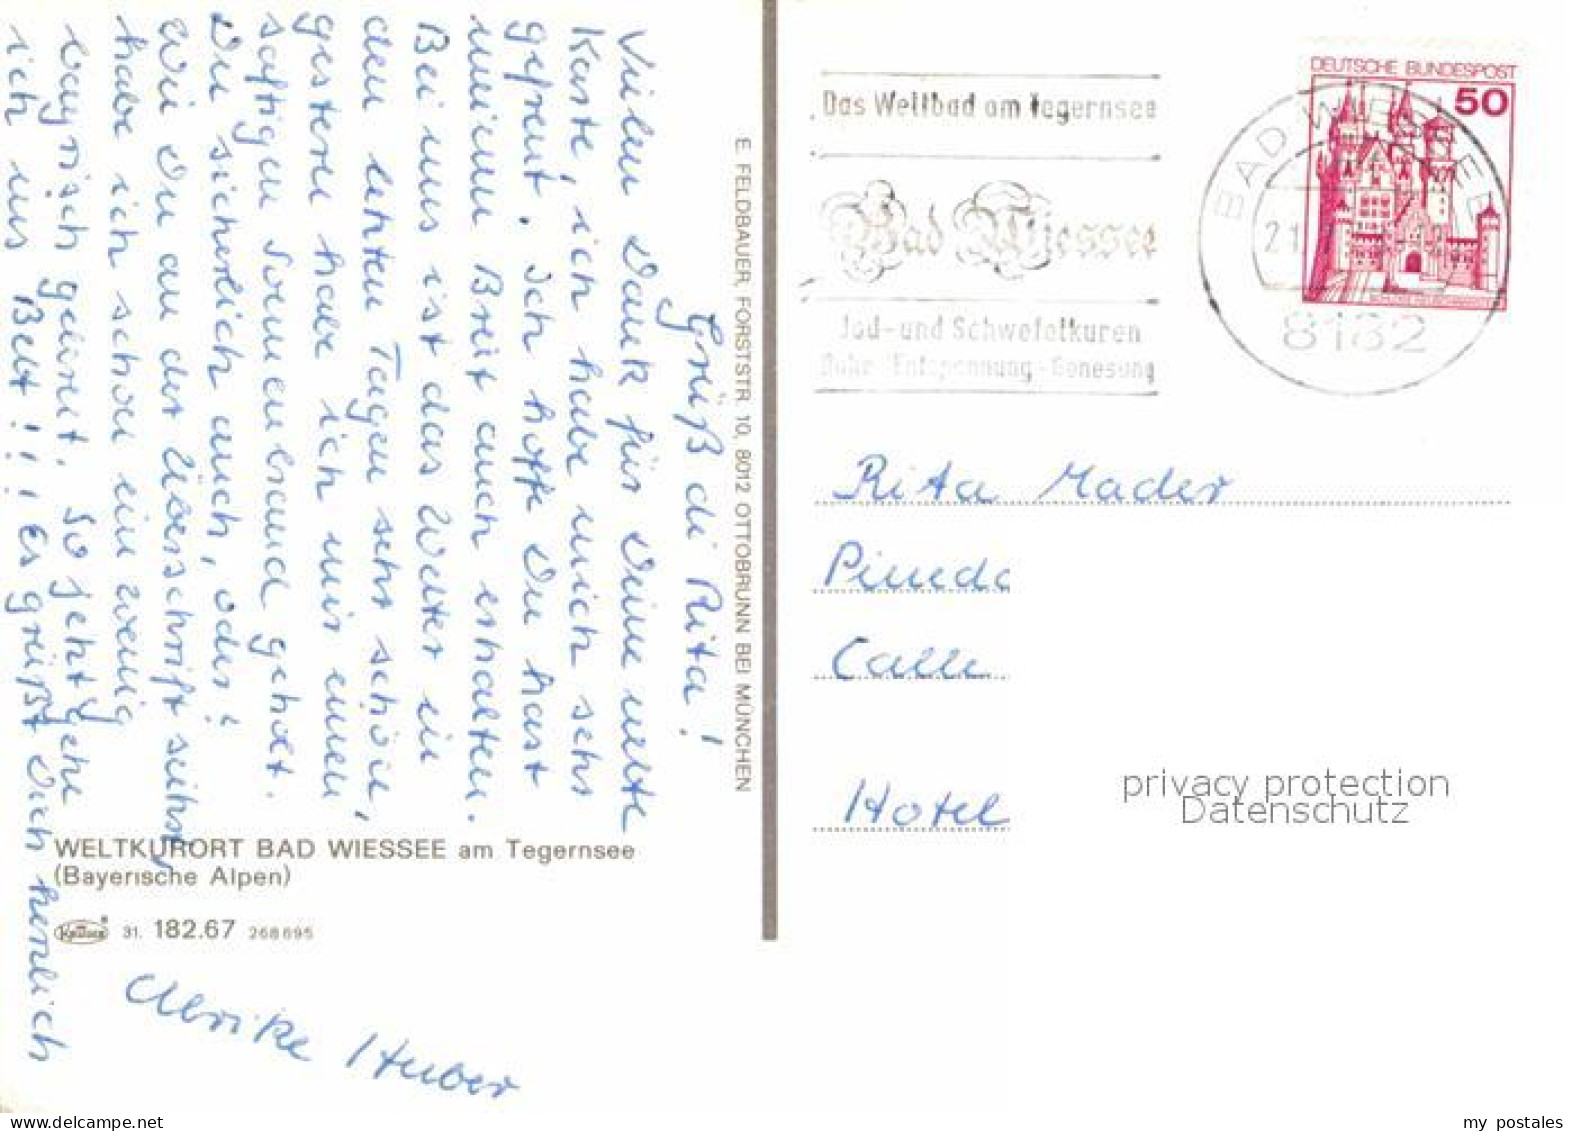 Grüß di Rita!
Vielen Dank für Deine nette
Karte, ich habe mich sehr
gefreut. Ich hoffe Du hast
meinen Brief auch erhalten.
Bei uns ist das Wetter in
den letzten Tagen sehr schön,
gestern habe ich mir einen
saftigen Sonnenbrand geholt.
Du sicherlich auch, oder?
Wie Du an der Überschrift siehst
habe ich schon ein wenig
bayrisch gelernt. So jetzt gehe
ich ins Bett!!! Es grüßt Dich herzlich
Ulrike Huber
E. FELDBAUER, FORSTSTR. 10, 8012 OTTOBRUNN BEI MÜNCHEN
WELTKURORT BAD WIESSEE am Tegernsee
(Bayerische Alpen)
Krüger 31. 182.67 268695
Das Weltbad am Tegernsee
Bad Wiessee
Jod- und Schwefelkuren
Ruhe · Entspannung · Genesung
DEUTSCHE BUNDESPOST
50
BAD WIESSEE
21
8182
Rita Mader
Pineda
Calle
Hotel
privacy protection
Datenschutz
my postales